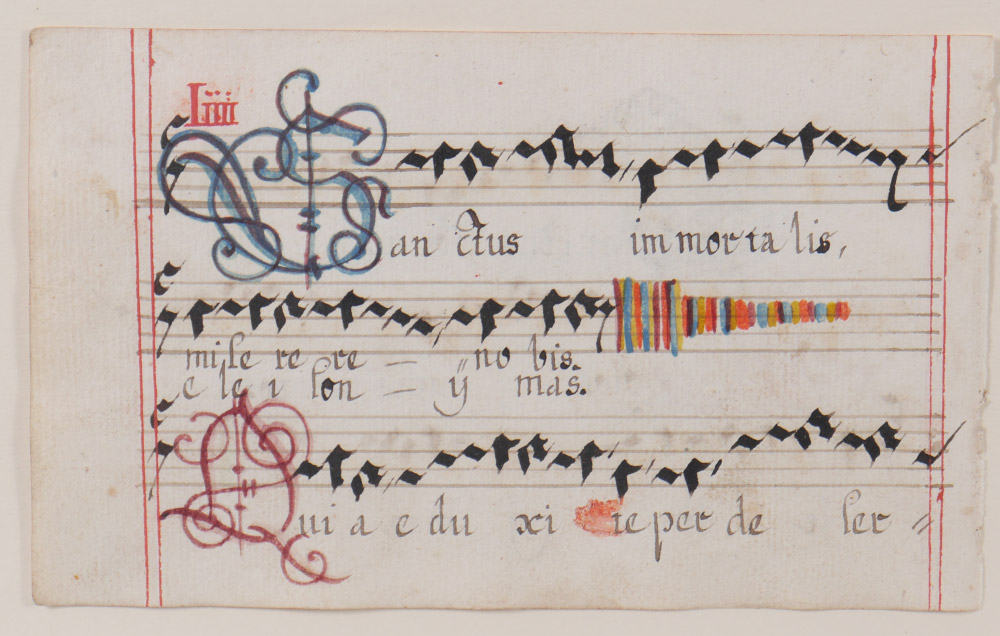 Liiii
San ctus immortalis,
mise re re — ij no bis.
e le i son — ij mas.
Quia e du xi te per de ser =